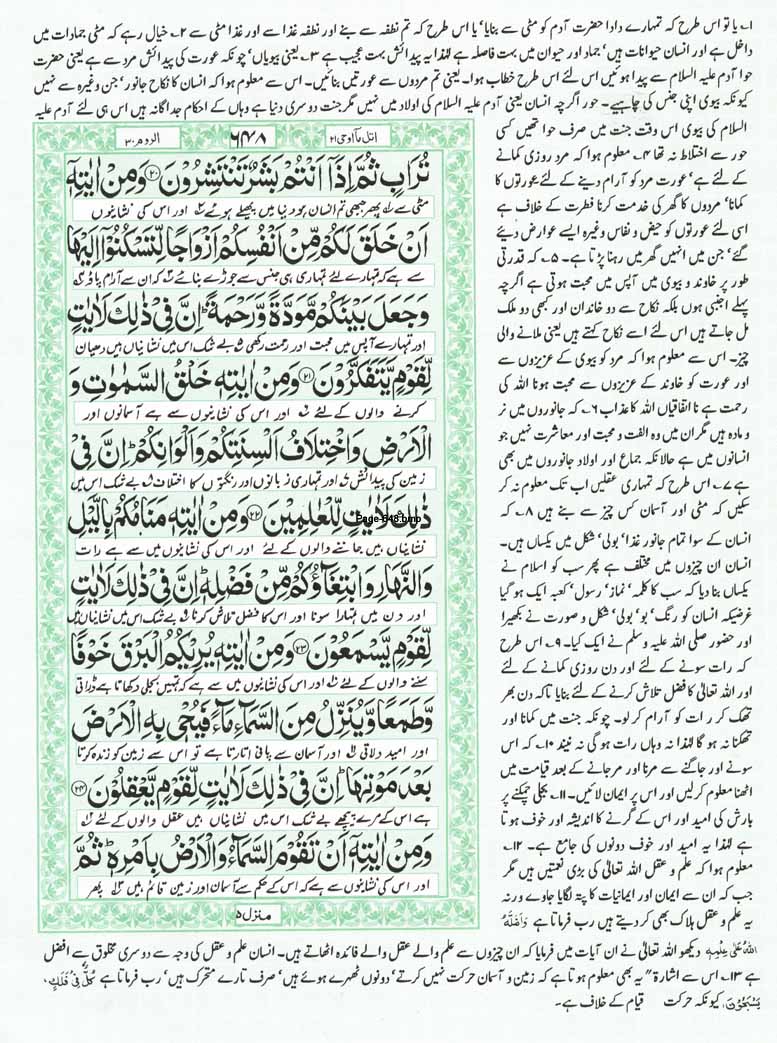 ۱۔ یا تو اس طرح کہ تمہارے دادا حضرت آدم کو مٹی سے بنایا‘ یا اس طرح کہ تم نطفہ سے بنے اور نطفہ غذا سے اور غذا مٹی سے ۲۔ خیال رہے کہ مٹی جمادات میں
داخل ہے اور انسان حیوانات ہیں‘ جماد اور حیوان میں بہت فاصلہ ہے لہٰذا یہ پیدائش بہت عجیب ہے ۳۔ یعنی بیویاں‘ چونکہ عورت کی پیدائش مرد سے ہے یعنی حضرت
حوا آدم علیہ السلام سے پیدا ہوئیں اس لئے اس طرح خطاب ہوا۔ یعنی تم مردوں سے عورتیں بنائیں۔ اس سے معلوم ہوا کہ انسان کا نکاح جانور‘ جن وغیرہ سے نہیں
کیونکہ بیوی اپنی جنس کی چاہیے۔ حور اگرچہ انسان یعنی آدم علیہ السلام کی اولاد میں نہیں مگر جنت دوسری دنیا ہے وہاں کے احکام جداگانہ ہیں اس ہی لئے آدم علیہ
السلام کی بیوی اس وقت جنت میں صرف حوا تھیں کسی
حور سے اختلاط نہ تھا ۴۔ معلوم ہوا کہ مرد روزی کمانے
کے لئے ہے‘ عورت مرد کو آرام دینے کے لئے عورتوں کا
کمانا‘ مردوں کا گھر کی خدمت کرنا فطرت کے خلاف ہے
اسی لئے عورتوں کو حیض و نفاس وغیرہ ایسے عوارض دیئے
گئے‘ جن میں انہیں گھر میں رہنا پڑتا ہے۔ ۵۔ کہ قدرتی
طور پر خاوند و بیوی میں آپس میں محبت ہوتی ہے اگرچہ
پہلے اجنبی ہوں بلکہ نکاح سے دو خاندان اور کبھی دو ملک
مل جاتے ہیں اس لئے اسے نکاح کہتے ہیں یعنی ملانے والی
چیز۔ اس سے معلوم ہوا کہ مرد کو بیوی کے عزیزوں سے
اور عورت کو خاوند کے عزیزوں سے محبت ہونا اللہ کی
رحمت ہے نا اتفاقیاں اللہ کا عذاب ۶۔ کہ جانوروں میں نر
و مادہ ہیں مگر ان میں وہ الفت و محبت اور معاشرت نہیں جو
انسانوں میں ہے حالانکہ جماع اور اولاد جانوروں میں بھی
ہے ۷۔ اس طرح کہ تمہاری عقلیں اب تک معلوم نہ کر
سکیں کہ مٹی اور آسمان کس چیز سے بنے ہیں ۸۔ کہ
انسان کے سوا تمام جانور غذا‘ بولی‘ شکل میں یکساں ہیں۔
انسان ان چیزوں میں مختلف ہے پھر سب کو اسلام نے
یکساں بنا دیا کہ سب کا کلمہ‘ نماز‘ رسول‘ کعبہ ایک ہو گیا
غرضیکہ انسان کو رنگ‘ بو‘ بولی‘ شکل و صورت نے بکھیرا
اور حضور صلی اللہ علیہ وسلم نے ایک کیا۔ ۹۔ اس طرح
کہ رات سونے کے لئے اور دن روزی کمانے کے لئے
اور اللہ تعالیٰ کا فضل تلاش کرنے کے لئے بنایا تاکہ دن بھر
تھک کر رات کو آرام کر لو۔ چونکہ جنت میں کمانا اور
تھکنا نہ ہو گا لہٰذا نہ وہاں رات ہو گی نہ نیند ۱۰۔ کہ اس
سونے اور جاگنے سے مرنا اور مر جانے کے بعد قیامت میں
اٹھنا معلوم کر لیں اور اس پر ایمان لائیں۔ ۱۱۔ بجلی چمکنے پر
بارش کی امید اور اس کے گرنے کا اندیشہ اور خوف ہوتا
ہے لہٰذا یہ امید اور خوف دونوں کی جامع ہے۔ ۱۲۔
معلوم ہوا کہ علم و عقل اللہ تعالیٰ کی بڑی نعمتیں ہیں مگر
جب کہ ان سے ایمان اور ایمانیات کا پتہ لگایا جاوے ورنہ
یہ علم و عقل ہلاک بھی کر دیتے ہیں رب فرماتا ہے وَاَضَلَّهُ
اتل مآاوحی۲۱
۶۴۸
الروم۳۰
تُرَابٍ ثُمَّ اِذَاۤ اَنْتُمْ بَشَرٌ تَنْتَشِرُوْنَ ﴿۲۰﴾ وَمِنْ اٰيٰتِهٖۤ
مٹی سے پھر جبھی تم انسان ہو دنیا میں پھیلے ہوئے اور اس کی نشانیوں
اَنْ خَلَقَ لَكُمْ مِّنْ اَنْفُسِكُمْ اَزْوَاجًا لِّتَسْكُنُوْۤا اِلَيْهَا
سے ہے کہ تمہارے لئے تمہاری ہی جنس سے جوڑے بنائے کہ ان سے آرام پاؤ
وَجَعَلَ بَيْنَكُمْ مَّوَدَّةً وَّرَحْمَةً ؕ اِنَّ فِيْ ذٰلِكَ لَاٰيٰتٍ
اور تمہارے آپس میں محبت اور رحمت رکھی بے شک اس میں نشانیاں ہیں دھیان
لِّقَوْمٍ يَّتَفَكَّرُوْنَ ﴿۲۱﴾ وَمِنْ اٰيٰتِهٖ خَلْقُ السَّمٰوٰتِ وَ
کرنے والوں کے لئے اور اس کی نشانیوں سے ہے آسمانوں اور
الْاَرْضِ وَاخْتِلَافُ اَلْسِنَتِكُمْ وَاَلْوَانِكُمْ ؕ اِنَّ فِيْ
زمین کی پیدائش اور تمہاری زبانوں اور رنگتوں کا اختلاف بے شک اس میں
ذٰلِكَ لَاٰيٰتٍ لِّلْعٰلِمِيْنَ ﴿۲۲﴾ وَمِنْ اٰيٰتِهٖ مَنَامُكُمْ بِالَّيْلِ
Page-648.bmp
نشانیاں ہیں جاننے والوں کے لئے اور اس کی نشانیوں میں سے ہے رات
وَالنَّهَارِ وَابْتِغَآؤُكُمْ مِّنْ فَضْلِهٖ ؕ اِنَّ فِيْ ذٰلِكَ لَاٰيٰتٍ
اور دن میں تمہارا سونا اور اس کا فضل تلاش کرنا بے شک اس میں نشانیاں ہیں
لِّقَوْمٍ يَّسْمَعُوْنَ ﴿۲۳﴾ وَمِنْ اٰيٰتِهٖ يُرِيْكُمُ الْبَرْقَ خَوْفًا
سننے والوں کے لئے اور اس کی نشانیوں میں سے ہے کہ تمہیں بجلی دکھاتا ہے ڈراتی
وَّطَمَعًا وَّيُنَزِّلُ مِنَ السَّمَآءِ مَآءً فَيُحْيٖ بِهِ الْاَرْضَ
اور امید دلاتی اور آسمان سے پانی اتارتا ہے تو اس سے زمین کو زندہ کرتا
بَعْدَ مَوْتِهَا ؕ اِنَّ فِيْ ذٰلِكَ لَاٰيٰتٍ لِّقَوْمٍ يَّعْقِلُوْنَ ﴿۲۴﴾
ہے اس کے مرے پیچھے بے شک اس میں نشانیاں ہیں عقل والوں کے لئے
وَمِنْ اٰيٰتِهٖۤ اَنْ تَقُوْمَ السَّمَآءُ وَالْاَرْضُ بِاَمْرِهٖ ؕ ثُمَّ
اور اس کی نشانیوں سے ہے کہ اس کے حکم سے آسمان اور زمین قائم ہیں پھر
منزل۵
اللهُ عَلٰى عِلْمِهٖ دیکھو اللہ تعالیٰ نے ان آیات میں فرمایا کہ ان چیزوں سے علم والے عقل والے فائدہ اٹھاتے ہیں۔ انسان علم و عقل کی وجہ سے دوسری مخلوق سے افضل
ہے ۱۳۔ اس سے اشارۃً یہ بھی معلوم ہوتا ہے کہ زمین و آسمان حرکت نہیں کرتے‘ دونوں ٹھہرے ہوئے ہیں‘ صرف تارے متحرک ہیں‘ رب فرماتا ہے كُلٌّ فِيْ فَلَكٍ
يَّسْبَحُوْنَ‘ کیونکہ حرکت قیام کے خلاف ہے۔